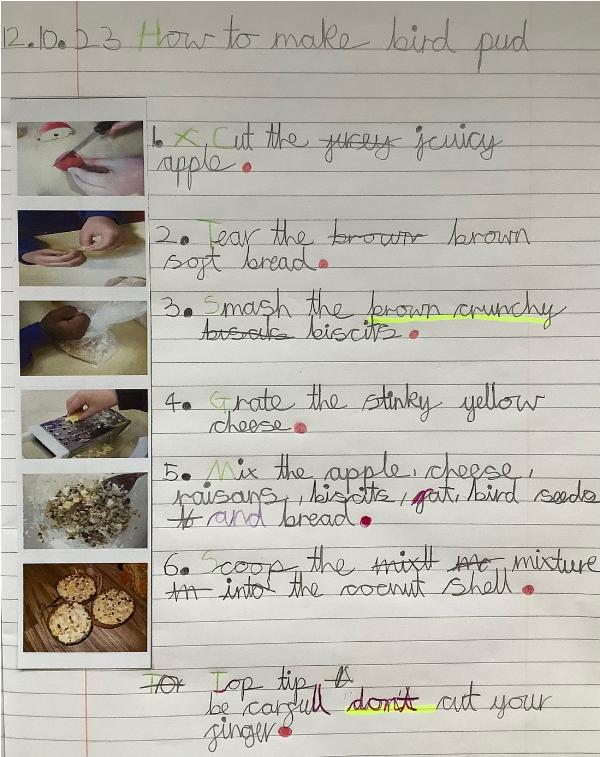 12.10.23 How to make bird pud
1. Cut the jcuicy
apple.
2. Tear the brown
soft bread.
3. Smash the brown crunchy
biscits.
4. Grate the stinky yellow
cheese.
5. Mix the apple, cheese,
raisans, biscits, fat, bird seeds
and bread.
6. Scoop the mixture
into the cocnut shell.
Top tip
be carfull don't cut your
finger.